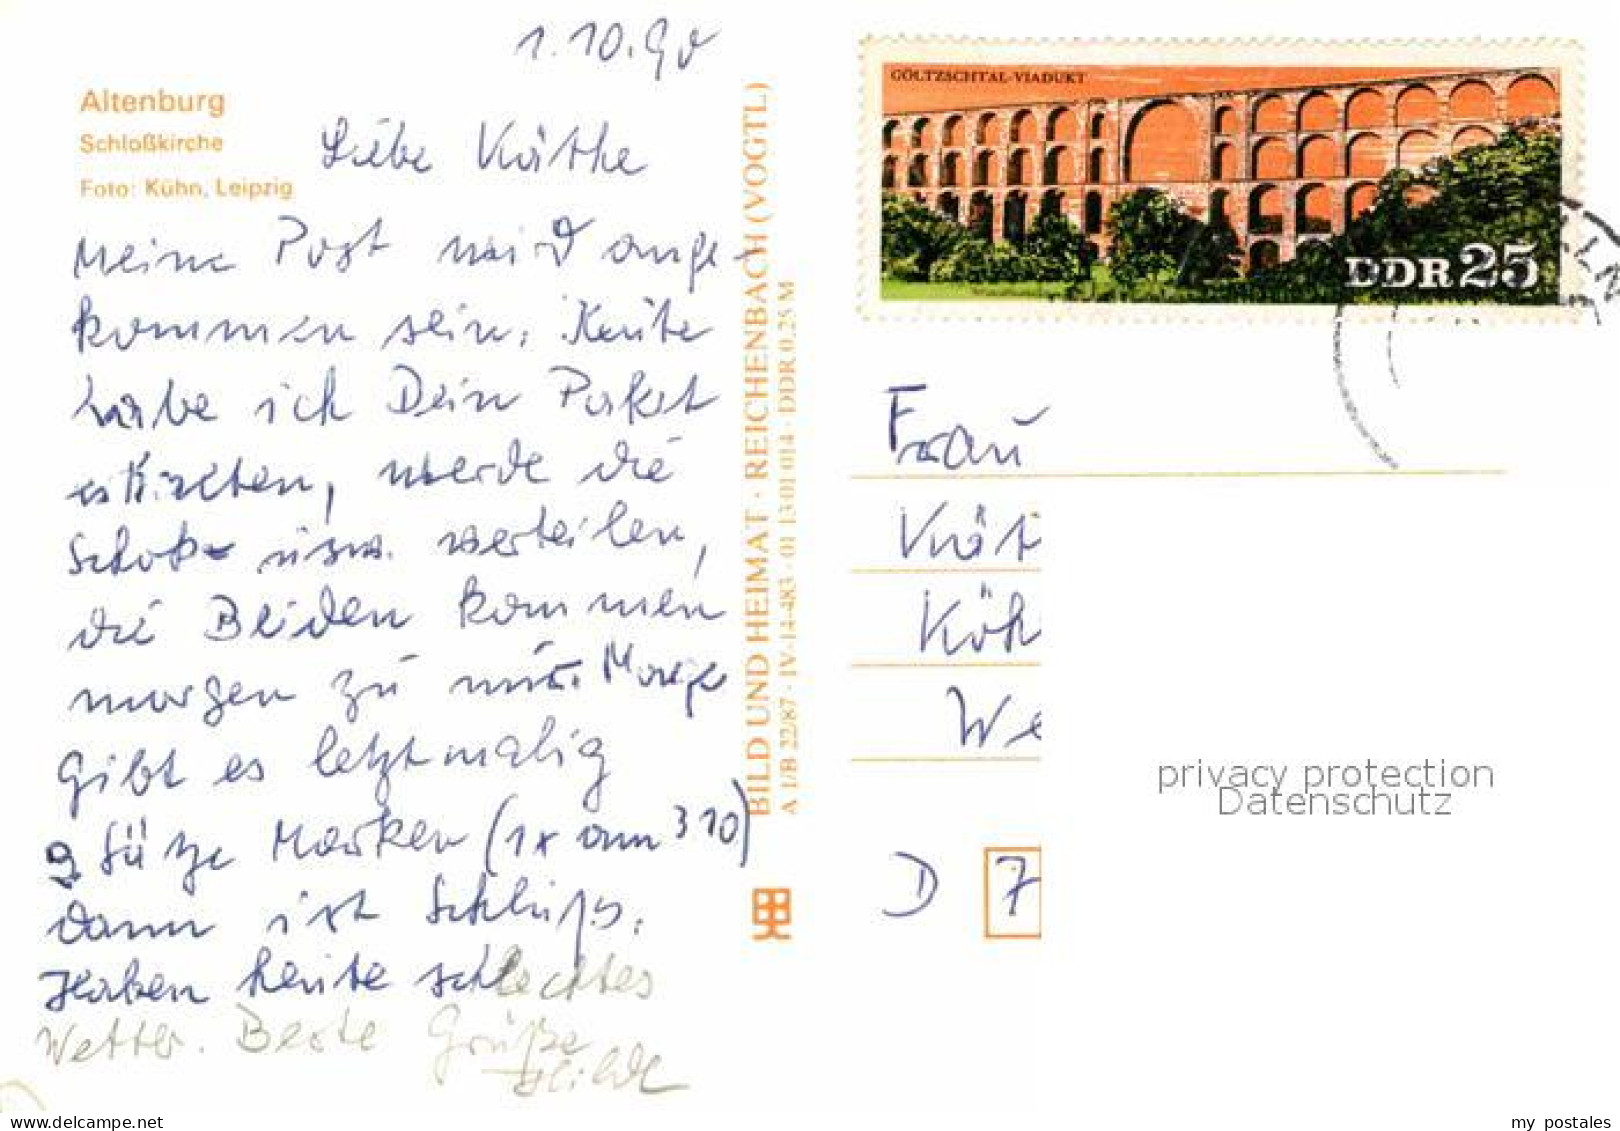 1.10.90
Altenburg
Schloßkirche
Foto: Kühn, Leipzig
Liebe Käthe
Meine Post wird ange-
kommen sein. Heute
habe ich Dein Paket
erhalten, werde die
Schok- usw. verteilen,
die Beiden kommen
morgen zu mir. Morgen
Gibt es letztmalig
2 Sätze Marken (1x am 3 10)
dann ist Schluß.
Haben heute schlechtes
Wetter. Beste Grüße
Hilde
BILD UND HEIMAT · REICHENBACH (VOGTL)
A 1/B 22/87 · IV-14-483 · 01 13 01 014 · DDR 0,25 M
GÖLTZSCHTAL-VIADUKT
DDR 25
Frau
Kät
Köh
We
D 7
privacy protection
Datenschutz
my postales